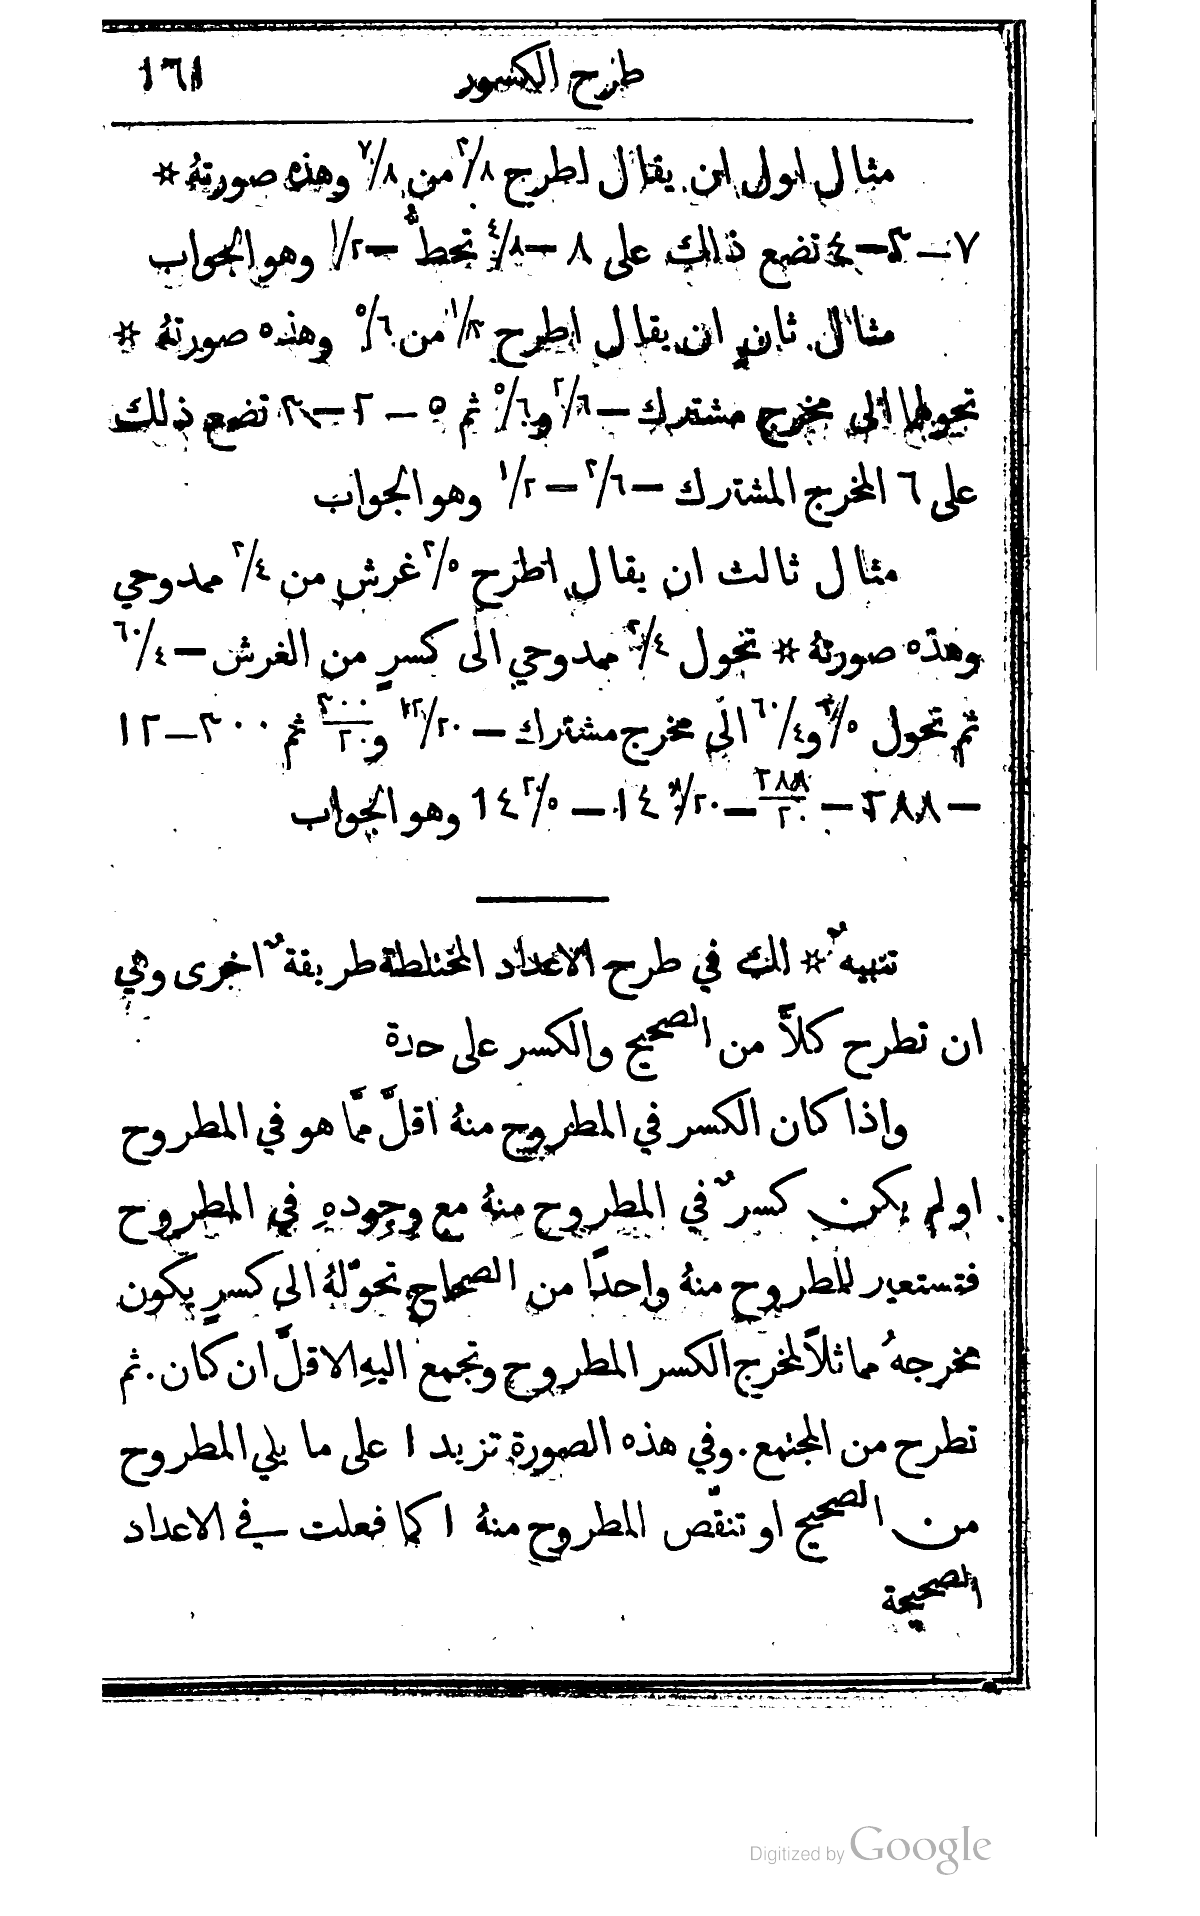 طرح الكسور
١٦١
مثال اول ان يقال اطرح ٣/٨ من ٧/٨ وهذه صورتهُ *
٧ — ٣ — ٤ تضع ذلك على ٨ — ٤/٨ تحطهُ — ١/٢ وهو الجواب
مثال ثانٍ ان يقال اطرح ١/٣ من ٥/٦ وهذه صورتهُ *
تحولهما الى مخرج مشترك — ٢/٦ و ٥/٦ ثم ٥ — ٢ — ٣ تضع ذلك
على ٦ المخرج المشترك — ٣/٦ — ١/٢ وهو الجواب
مثال ثالث ان يقال اطرح ٣/٥ غرش من ٣/٤ ممدوحي
وهذه صورتهُ * تحول ٣/٤ ممدوحي الى كسرٍ من الغرش — ٦٠/٤
ثم تحول ٣/٥ و ٦٠/٤ الى مخرج مشترك — ١٢/٢٠ و ٣٠٠/٢٠ ثم ٣٠٠ — ١٢
— ٢٨٨ — ٢٨٨/٢٠ — ١٤ ٨/٢٠ — ١٤ ٢/٥ وهو الجواب
تنبيهٌ * لك في طرح الاعداد المختلطة طريقةٌ اخرى وهي
ان تطرح كلاًّ من الصحيح والكسر على حدة
واذا كان الكسر في المطروح منهُ اقلَّ ممَّا هو في المطروح
او لم يكن كسرٌ في المطروح منهُ مع وجودهِ في المطروح
فتستعير للمطروح منهُ واحدًا من الصحاح تحوّلهُ الى كسرٍ يكون
مخرجهُ مماثلاً لمخرج الكسر المطروح وتجمع اليهِ الاقلَّ ان كان. ثم
تطرح من المجتمع. وفي هذه الصورة تزيد ١ على ما يلي المطروح
من الصحيح او تنقّص المطروح منهُ ١ كما فعلت في الاعداد
الصحيحة
Digitized by Google